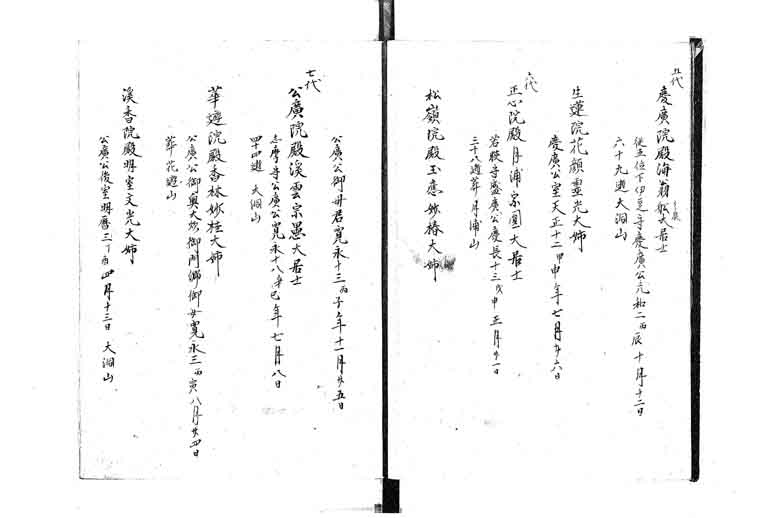 五代
慶廣院殿海翁舩大居士
従五位下伊豆守慶廣公元和二丙辰十月十二日
六十九逝大洞山
生蓮院花顔靈光大姉
慶廣公室天正十二甲申年七月廿六日
六代
正心院殿月浦宗圓大居士
若狭守盛廣公慶長十三戊申正月廿一日
三十八逝葬月浦山
松嶺院殿玉應妙椿大姉
公廣公御母君寛永十三丙子年十一月廿五日
七代
公廣院殿溪雲宗愚大居士
志摩守公廣公寛永十八辛巳年七月八日
四十四逝 大洞山
華遊院殿香林妙桂大姉
公廣公御奥大炊御門卿御女寛永三丙寅八月廿四日
葬花遊山
溪香院殿明室文光大姉
公廣公後室明暦三丁酉四月十三日 大洞山